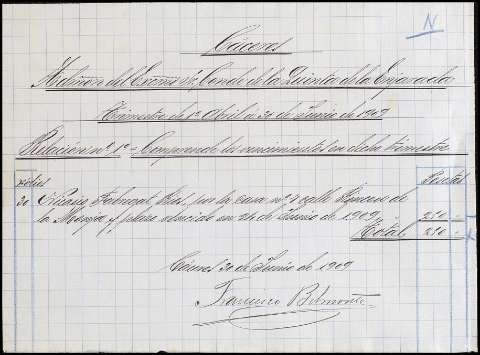 N
Cáceres
Admon del Excmo Sr. Conde de la Quinta de la Enjarada
Trimestre de 1º Abril a 30 de Junio de 1909
Relación nº 1º - Comprende de vencimientos en dicho trimestre
Pesetas
30 Fabregat, por la casa nº 7 calle
de la Monja, y plazo vencido en 24 de Junio de 1909 250 "
Total 250 "
Cáceres 30 de Junio de 1909
Francisco Belmonte